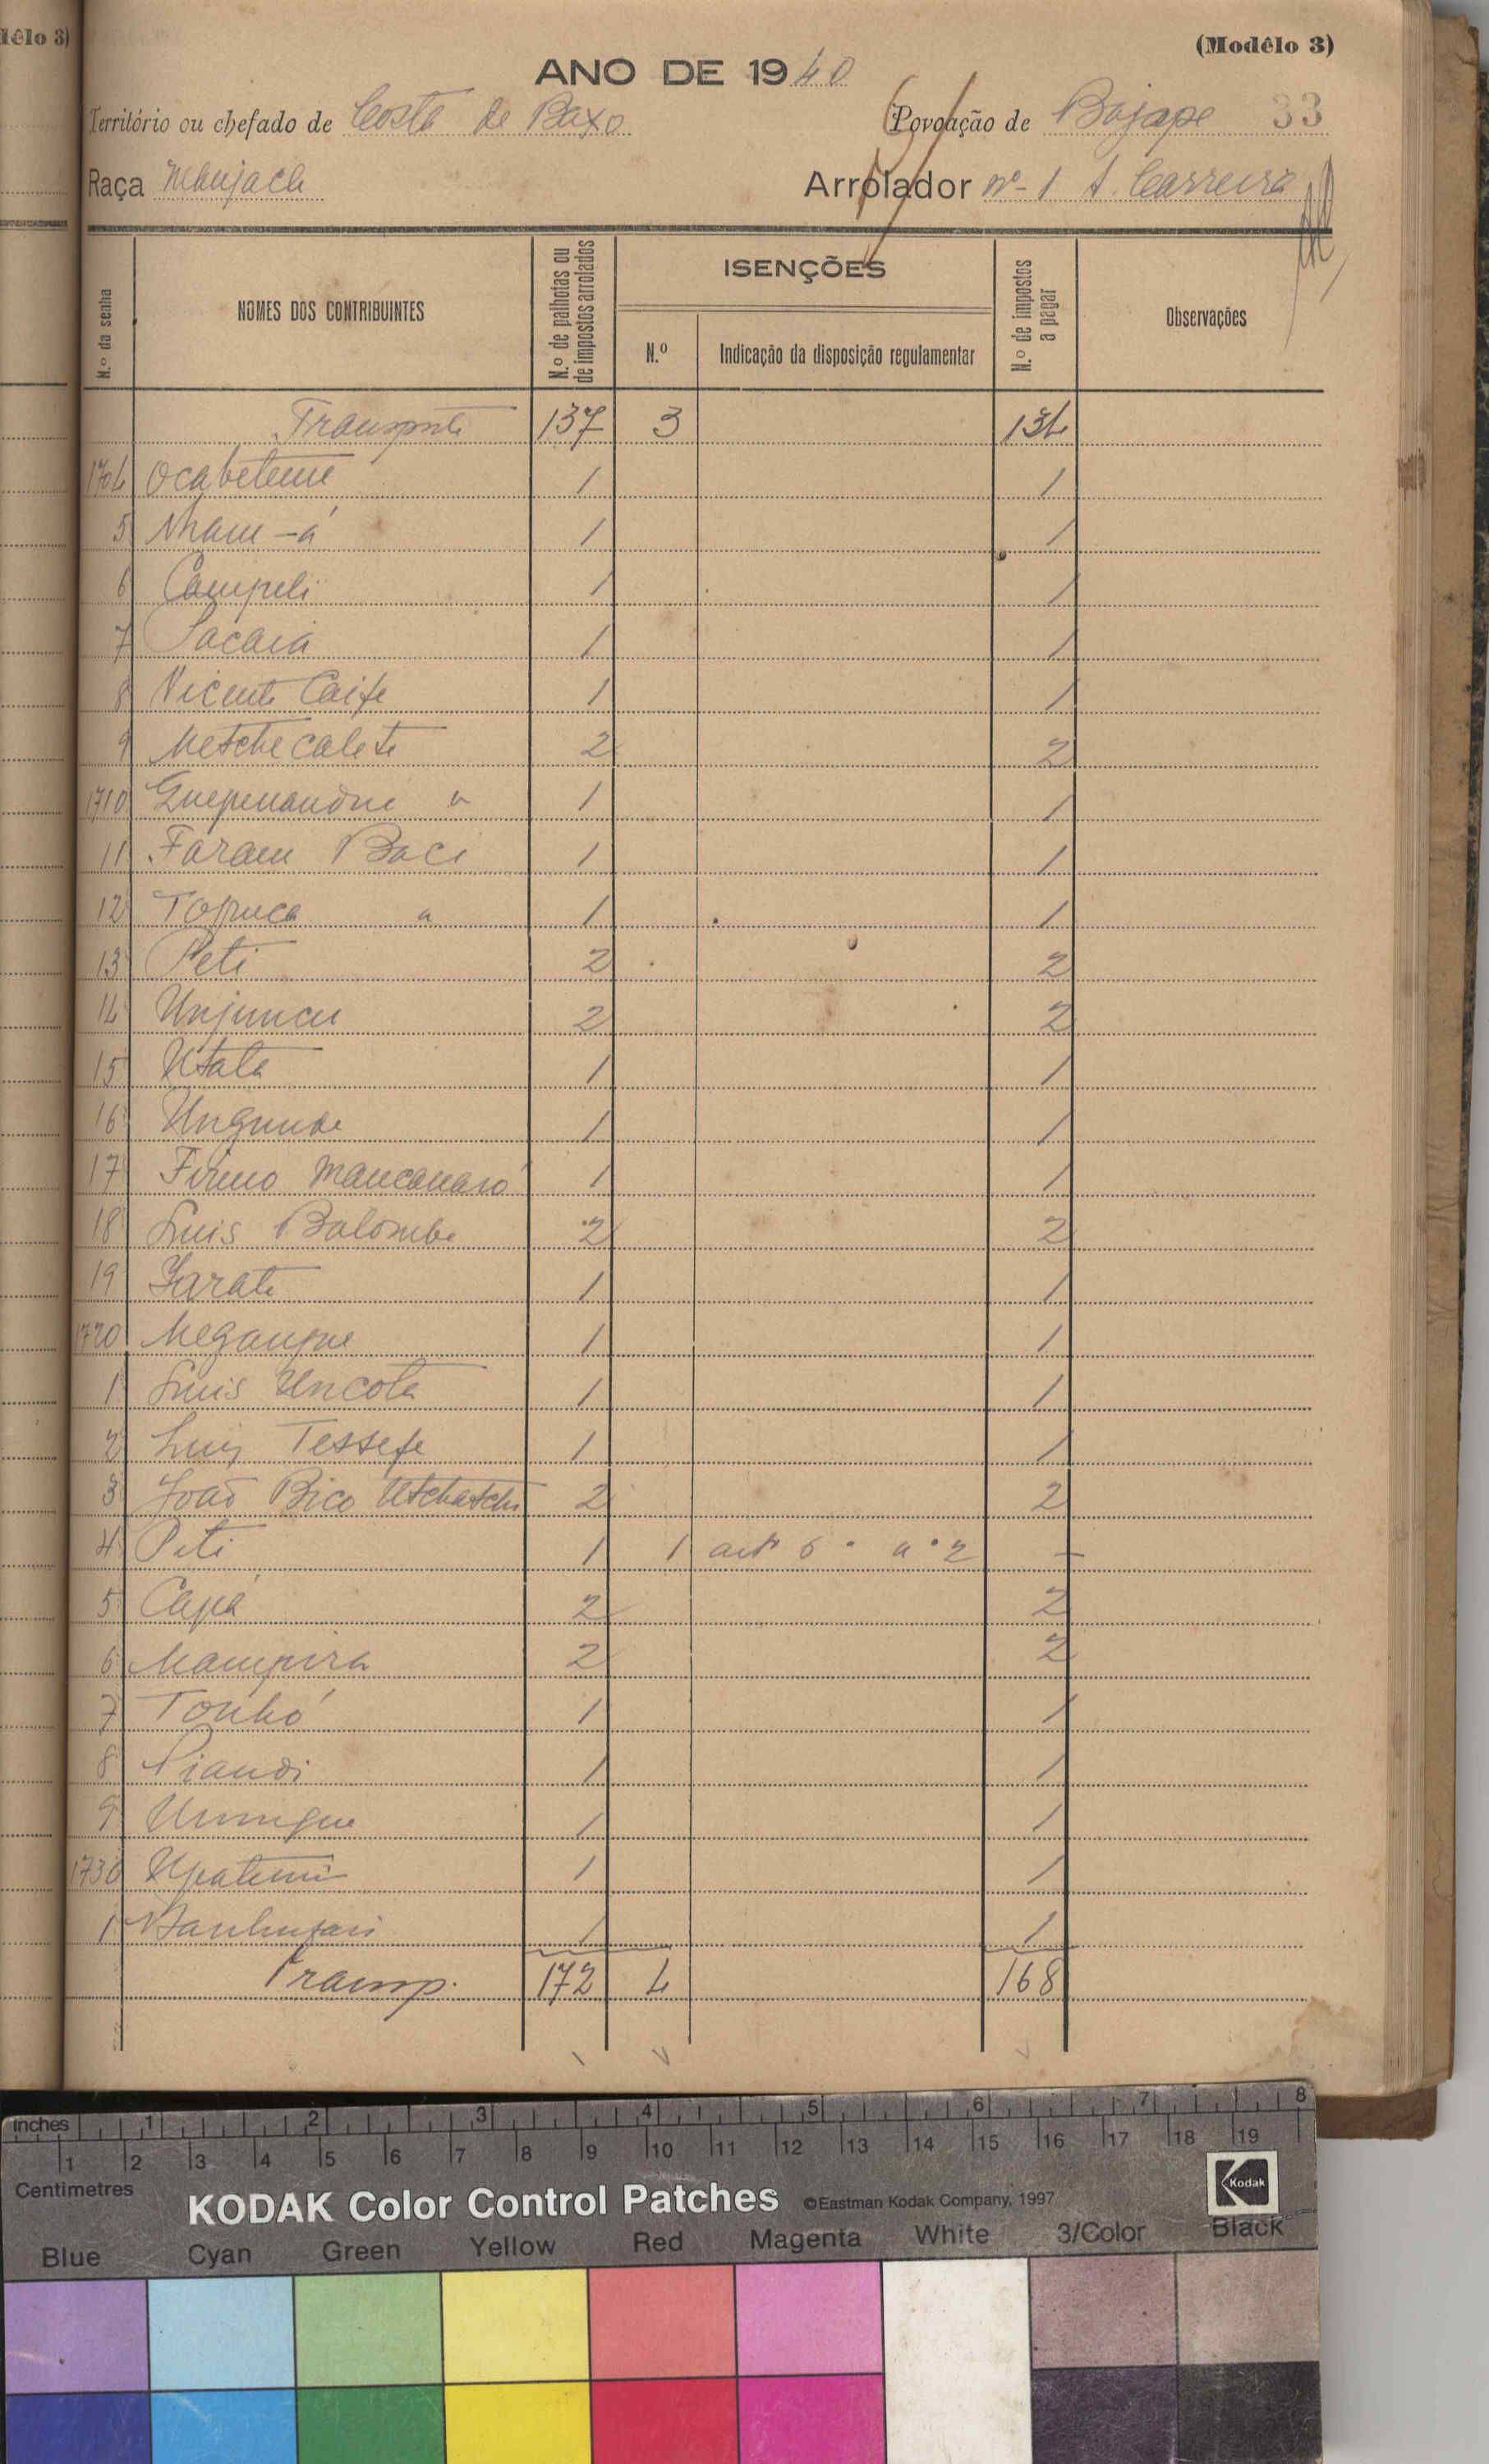 (Modêlo 3)
ANO DE 1940
Território ou chefado de Costa de Baxo Povoação de Bajope 33
Raça Manjaca Arrolador nº 1 A. Carreira
N.º da senha
NOMES DOS CONTRIBUINTES
N.º de palhotas ou de impostos arrolados
ISENÇÕES
N.º
Indicação da disposição regulamentar
N.º de impostos a pagar
Observações
Transporte 137 3 134
1704 Ocabeteme 1 1
5 Nham-á 1 1
6 Campeli 1 1
7 Sacaia 1 1
8 Vicente Caife 1 1
9 Metchecalete 2 2
1710 1 1
11 Faram Baci 1 1
12 Topuca " 1 1
13 Peti 2 2
14 Unjuncu 2 2
15 Utata 1 1
16 Ungunde 1 1
17 Firmo Mancanaró 1 1
18 Luis Balombe 2 2
19 Jarate 1 1
1720 Megaupue 1 1
1 Luis Uncota 1 1
2 Luis Tessefe 1 1
3 João Bico Utchatche 2 2
4 Peti 1 1 artº 6º nº 2 —
5 Capá 2 2
6 Mampira 2 2
7 Tonhó 1 1
8 Piandi 1 1
9 1 1
1730 Upatemi 1 1
1 1 1
Transp. 172 4 168
inches 1 2 3 4 5 6 7 8
1 2 3 4 5 6 7 8 9 10 11 12 13 14 15 16 17 18 19
Centimetres
KODAK Color Control Patches ©Eastman Kodak Company, 1997 Kodak
Blue Cyan Green Yellow Red Magenta White 3/Color Black